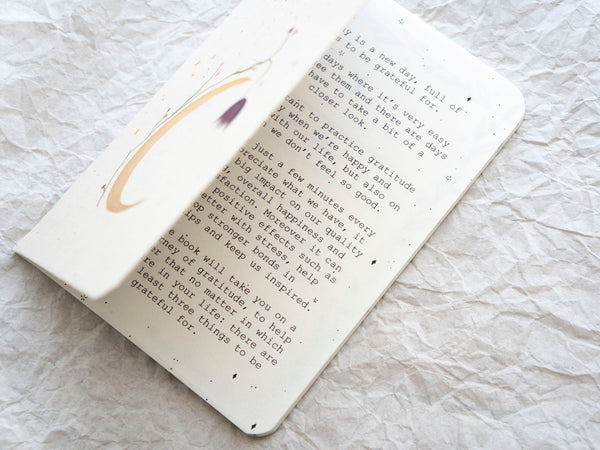 y is a new day, full of
s to be grateful for.
days where it's very easy
ee them and there are days
have to take a bit of a
closer look.
ant to practice gratitude
y when we're happy and
with our life, but also on
we don't feel so good.
just a few minutes every
preciate what we have, it
big impact on our quality
, overall happiness and
sfaction. Moreover it can
positive effects such as
etter with stress, help
op stronger bonds in
ips and keep us inspired.
e book will take you on a
rney of gratitude, to help
er that no matter in which
re in your life: there are
least three things to be
grateful for.